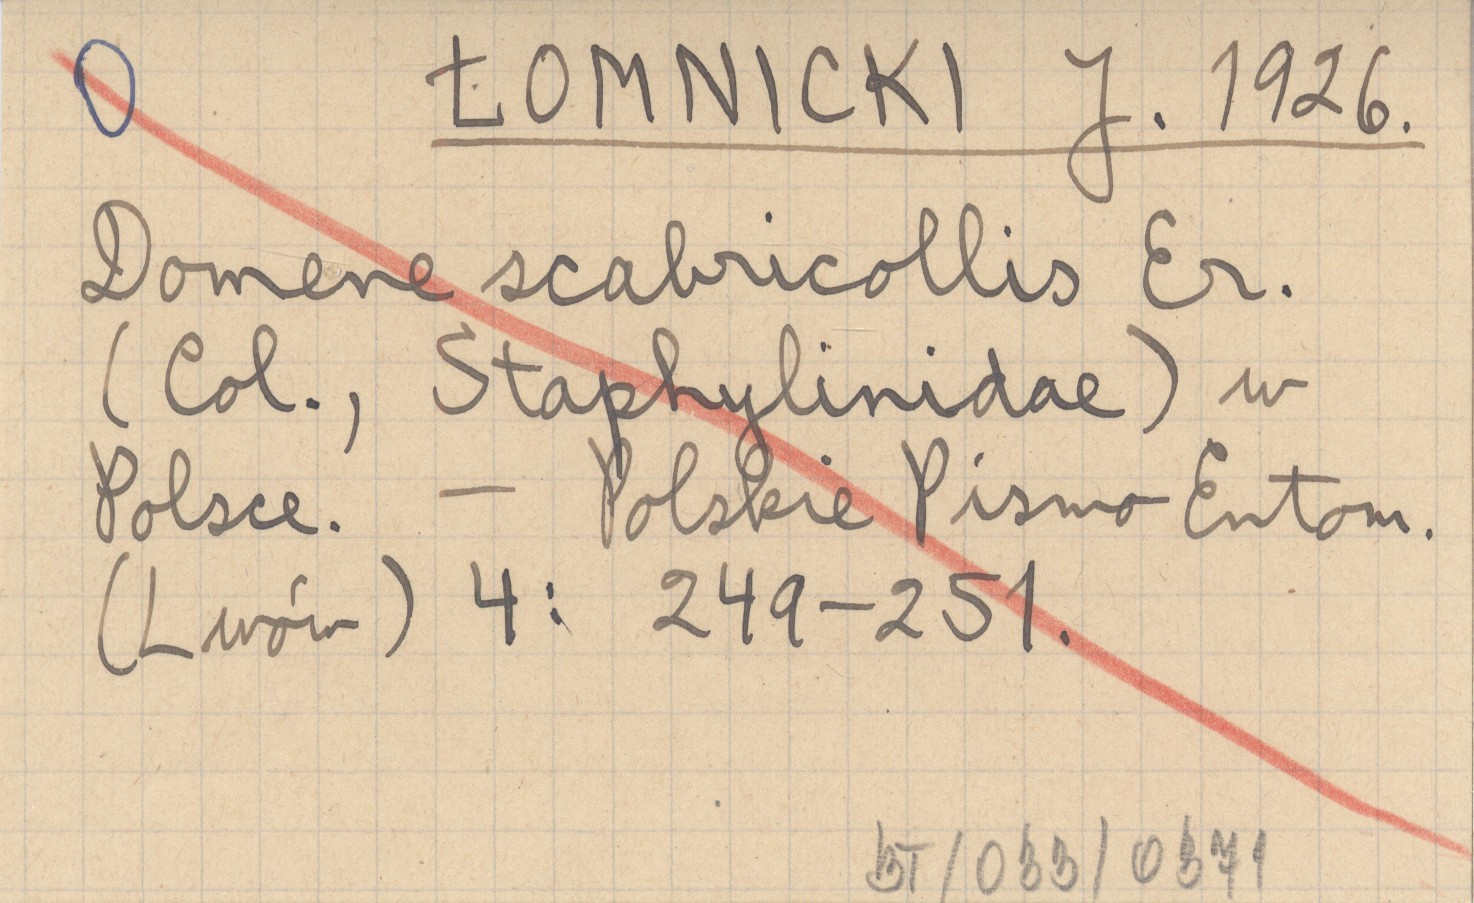 ŁOMNICKI J. 1926.
Domene scabricollis Er.
(Col., Staphylinidae) w
Polsce. — Polskie Pismo Entom.
(Lwów) 4: 249-251.
BT/033/0371